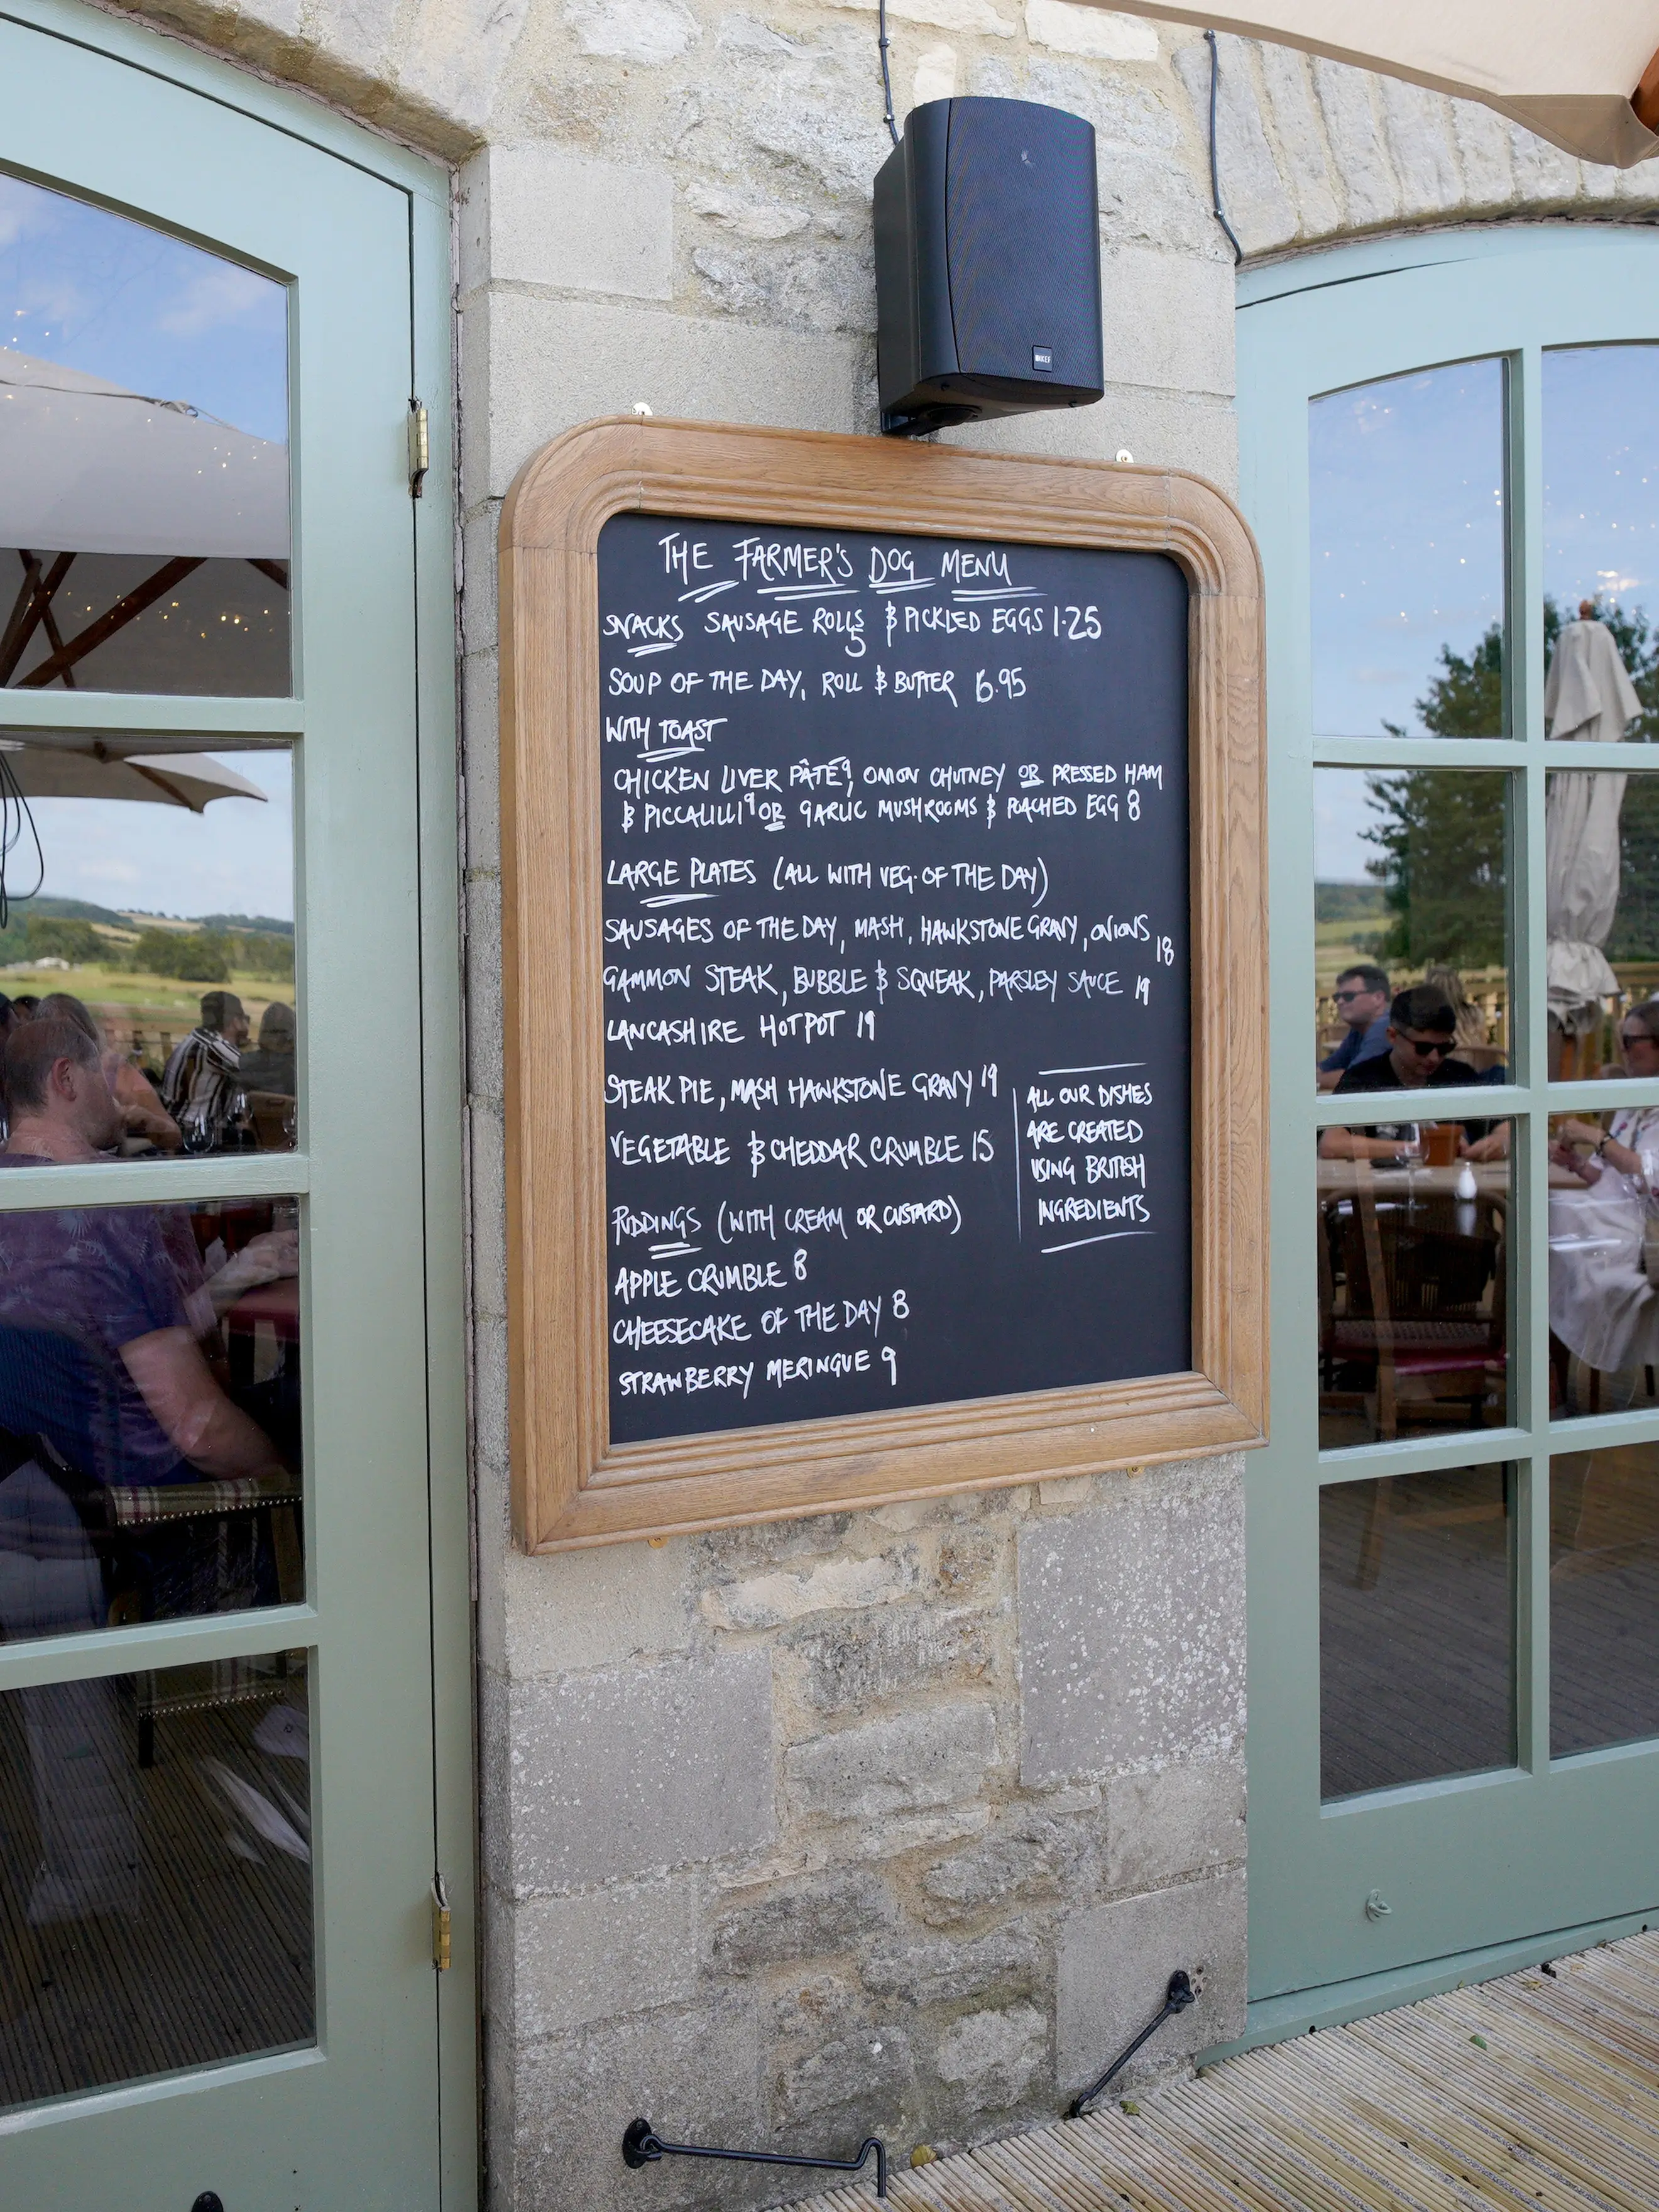 KEF
THE FARMER'S DOG MENU
SNACKS SAUSAGE ROLLS 5 & PICKLED EGGS 1.25
SOUP OF THE DAY, ROLL & BUTTER 6.95
WITH TOAST
CHICKEN LIVER PÂTÉ 9, ONION CHUTNEY OR PRESSED HAM
& PICCALILLI 9 OR GARLIC MUSHROOMS & POACHED EGG 8
LARGE PLATES (ALL WITH VEG. OF THE DAY)
SAUSAGES OF THE DAY, MASH, HAWKSTONE GRAVY, ONIONS 18
GAMMON STEAK, BUBBLE & SQUEAK, PARSLEY SAUCE 19
LANCASHIRE HOTPOT 19
STEAK PIE, MASH HAWKSTONE GRAVY 19
VEGETABLE & CHEDDAR CRUMBLE 15
PUDDINGS (WITH CREAM OR CUSTARD)
APPLE CRUMBLE 8
CHEESECAKE OF THE DAY 8
STRAWBERRY MERINGUE 9
ALL OUR DISHES
ARE CREATED
USING BRITISH
INGREDIENTS